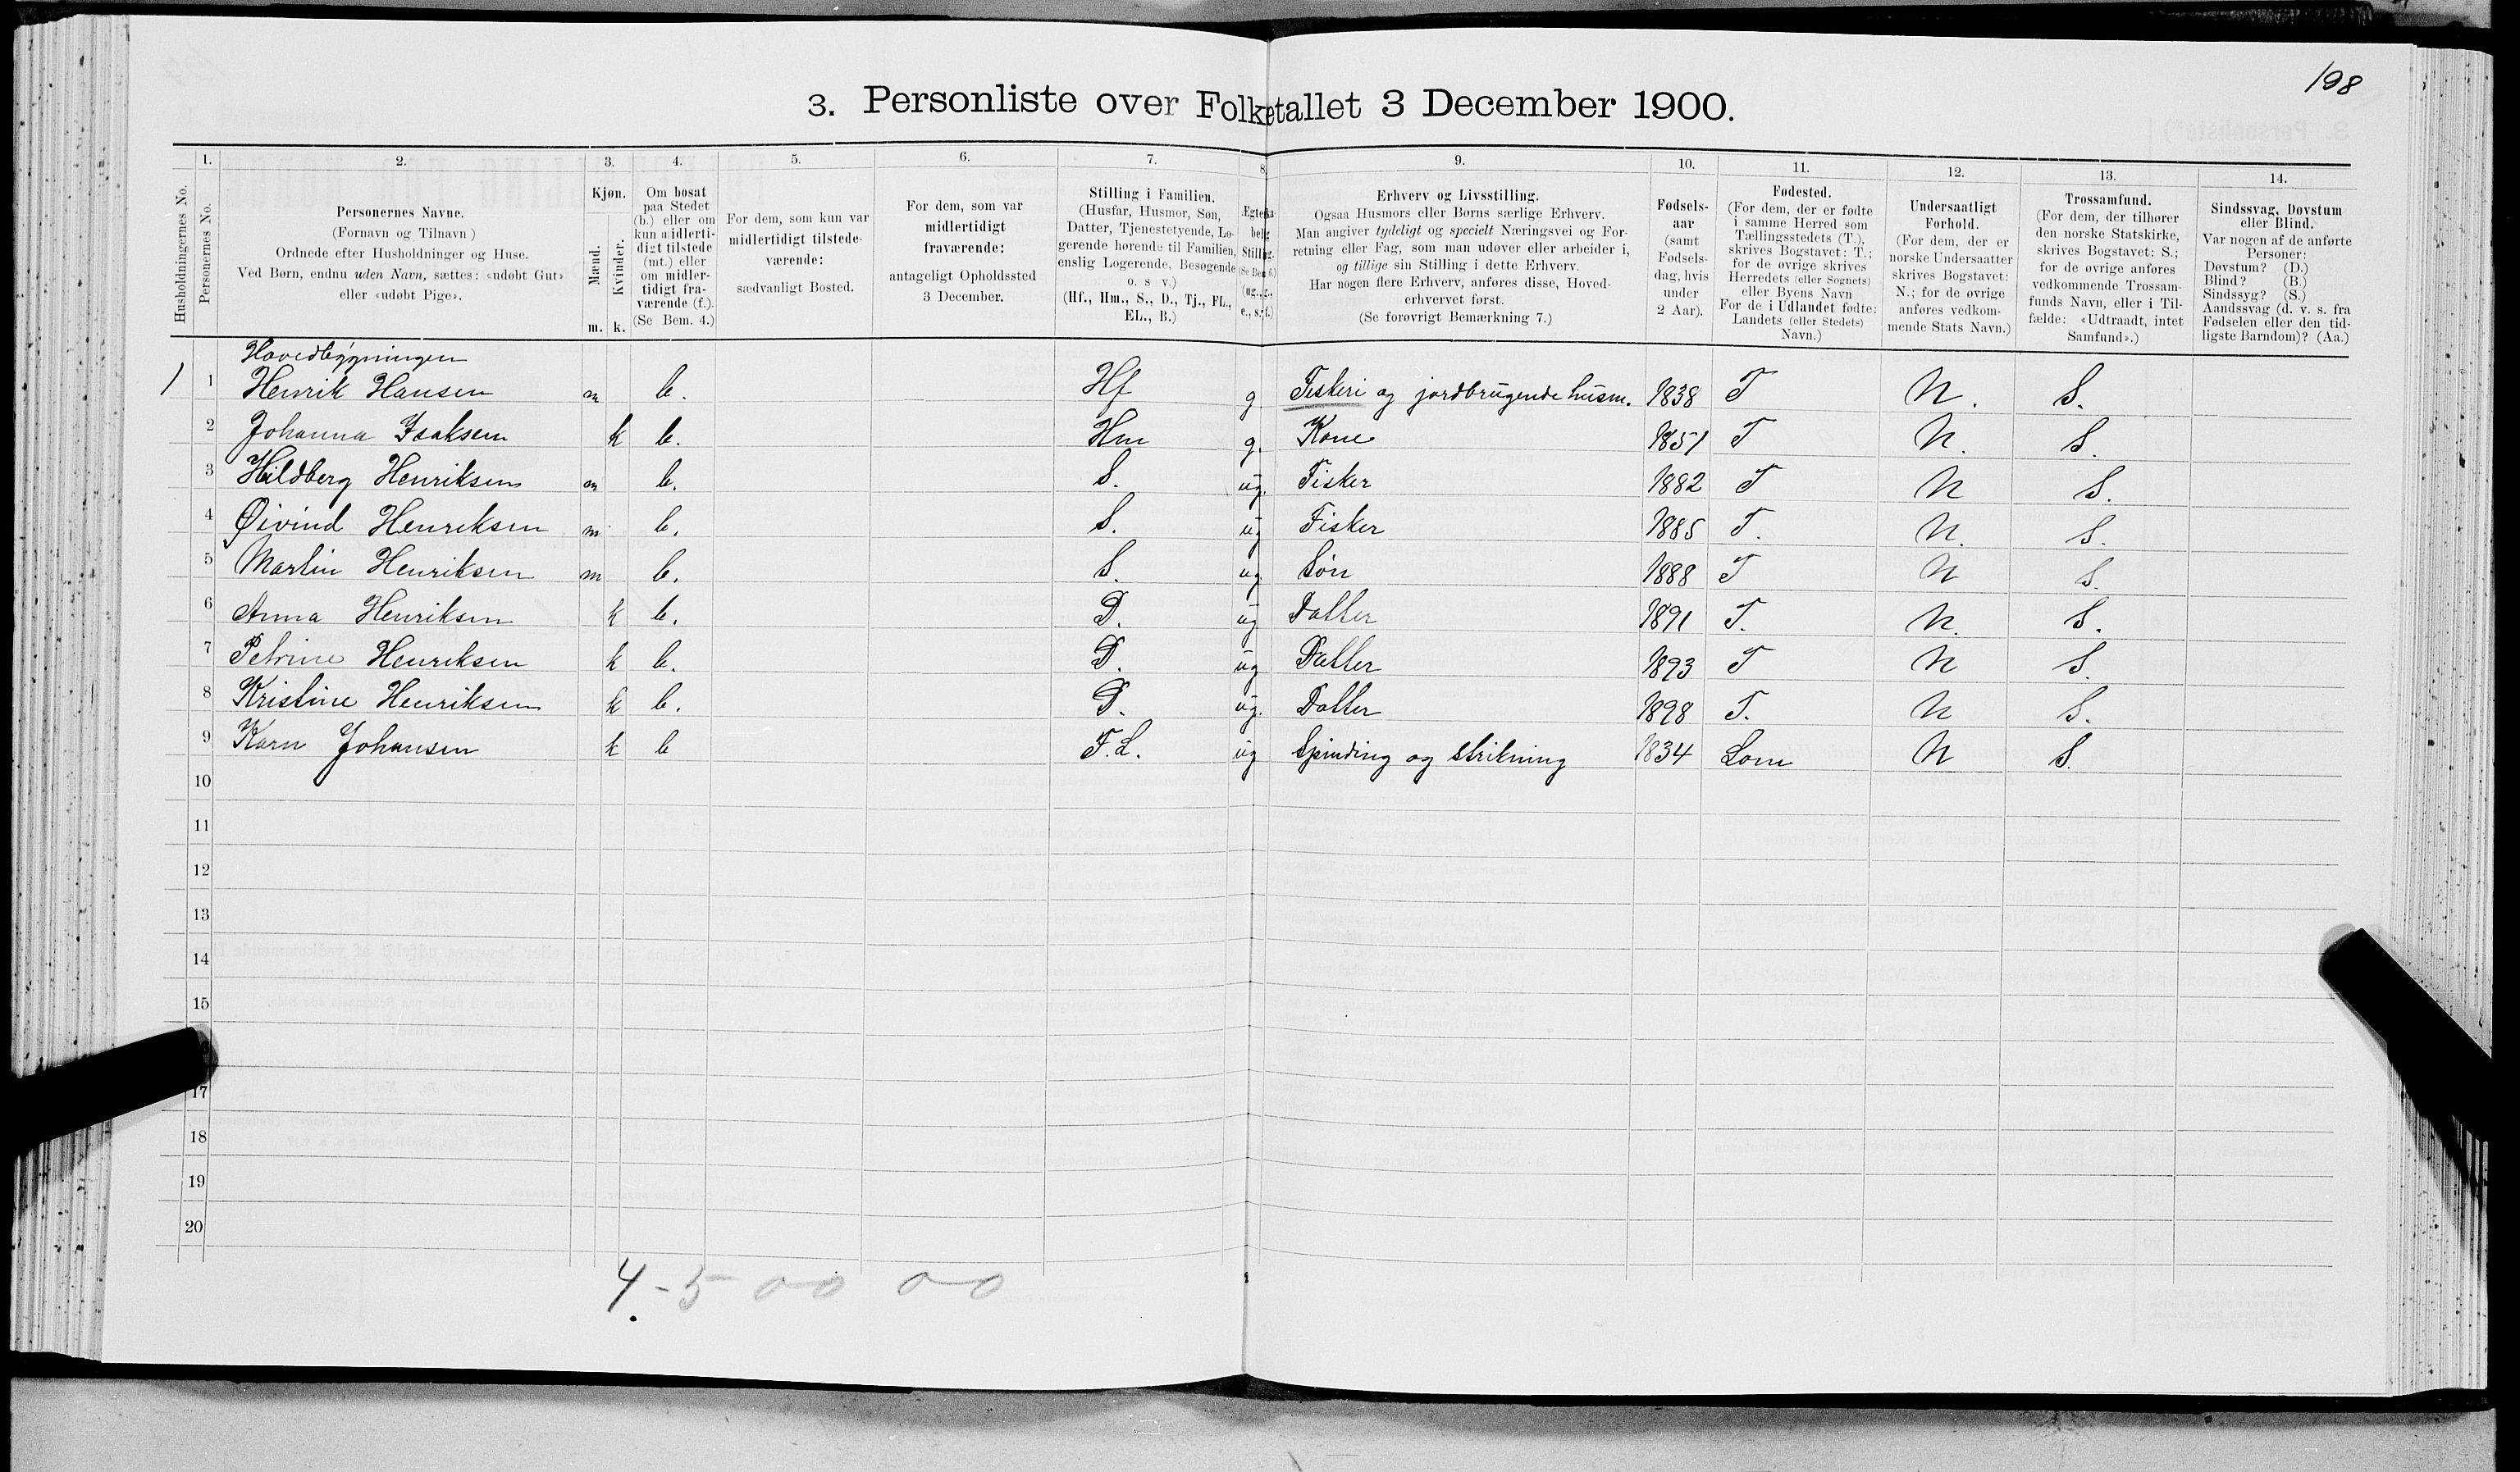 198
3. Personliste over Folketallet 3 December 1900.
Husholdningernes No.
1. Personernes No.
2. Personernes Navne.
(Fornavn og Tilnavn)
Ordnede efter Husholdninger og Huse.
Ved Børn, endnu uden Navn, sættes: «udøbt Gut»
eller «udøbt Pige».
3. Kjøn.
Mænd. Kvinder.
m. k.
4. Om bosat
paa Stedet
(b.) eller om
kun midlerti-
digt tilstede
(mt.) eller
om midler-
tidigt fra-
værende (f.).
(Se Bem. 4.)
5. For dem, som kun var
midlertidigt tilstede-
værende:
sædvanligt Bosted.
6. For dem, som var
midlertidigt
fraværende:
antageligt Opholdssted
3 December.
7. Stilling i Familien.
(Husfar, Husmor, Søn,
Datter, Tjenestetyende, Lo-
gerende hørende til Familien,
enslig Logerende, Besøgende
o. s v.)
(Hf., Hm., S., D., Tj., FL.,
EL., B.)
8. Ægteska-
belig
Stilling.
(Se Bem. 6.)
(ug., g.,
e., s., f.)
9. Erhverv og Livsstilling.
Ogsaa Husmors eller Børns særlige Erhverv.
Man angiver tydeligt og specielt Næringsvei og For-
retning eller Fag, som man udøver eller arbeider i,
og tillige sin Stilling i dette Erhverv.
Har nogen flere Erhverv, anføres disse, Hoved-
erhvervet først.
(Se forøvrigt Bemærkning 7.)
10. Fødsels-
aar
(samt
Fødsels-
dag, hvis
under
2 Aar).
11. Fødested.
(For dem, der er fødte
i samme Herred som
Tællingsstedets (T.),
skrives Bogstavet: T.;
for de øvrige skrives
Herredets (eller Sognets)
eller Byens Navn
For de i Udlandet fødte:
Landets (eller Stedets)
Navn.)
12. Undersaatligt
Forhold.
(For dem, der er
norske Undersaatter
skrives Bogstavet:
N.; for de øvrige
anføres vedkom-
mende Stats Navn.)
13. Trossamfund.
(For dem, der tilhører
den norske Statskirke,
skrives Bogstavet: S.;
for de øvrige anføres
vedkommende Trossam-
funds Navn, eller i Til-
fælde: «Udtraadt, intet
Samfund».)
14. Sindssvag, Døvstum
eller Blind.
Var nogen af de anførte
Personer:
Døvstum? (D.)
Blind? (B.)
Sindssyg? (S.)
Aandssvag (d. v. s. fra
Fødselen eller den tid-
ligste Barndom)? (Aa.)
Hovedbygningen
1 1 Henrik Hansen m b. Hf g Fiskeri og jordbrugende husm. 1838 T N. S.
2 Johanna Isaksen k b. Hm g. Kone 1851 T N. S.
3 Hildberg Henriksen m b. S. ug. Fisker 1882 T N S.
4 Øivind Henriksen m b. S. ug Fisker 1885 T. N. S.
5 Martin Henriksen m b. S. ug. Søn 1888 T N S.
6 Anna Henriksen k b. D. ug Datter 1891 T. N. S.
7 Petrine Henriksen k b. D. ug Datter 1893 T N S.
8 Kristine Henriksen k b. D. ug. Datter 1898 T. N S.
9 Karn Johansen k b F.L. ug Spinding og strikning 1834 Lom N S.
10
11
12
13
14
15
17
18
19
20
4-5 00 00